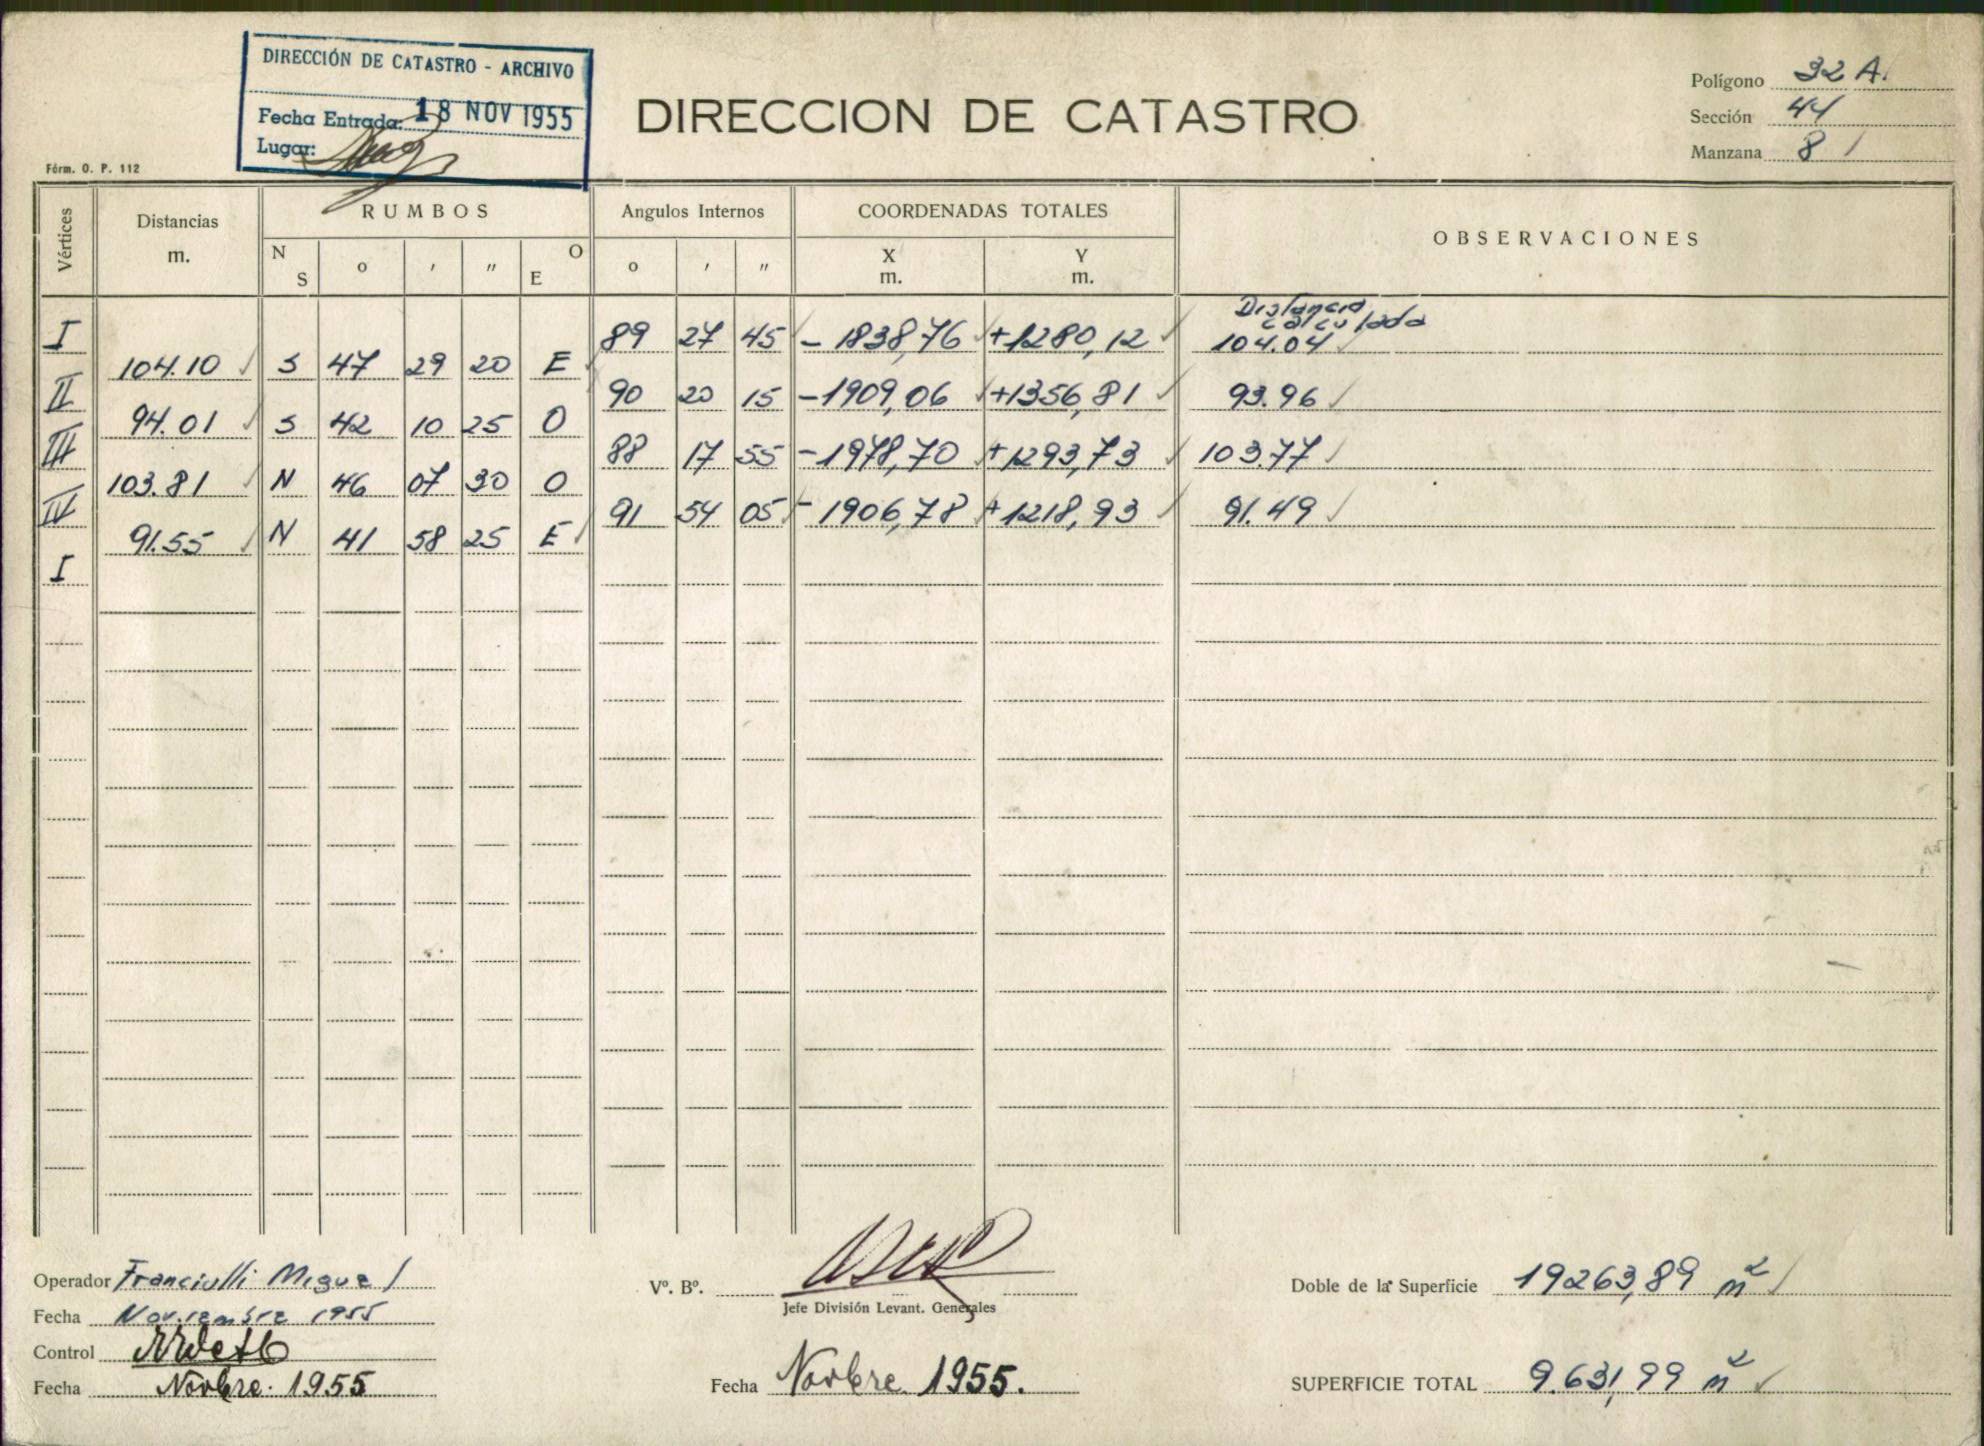 DIRECCIÓN DE CATASTRO - ARCHIVO
Fecha Entrada: 18 NOV 1955
Lugar:
DIRECCION DE CATASTRO
Polígono 32 A.
Sección 44
Manzana 8
Fórm. O. P. 112
Vértices Distancias m. RUMBOS Angulos Internos COORDENADAS TOTALES OBSERVACIONES
N S o ' " O E o ' " X m. Y m.
Distancia
calculada
I 89 27 45 - 1838,76 +1280,12 104.04
104.10 S 47 29 20 E
II 90 20 15 -1909,06 +1356,81 93.96
94.01 S 42 10 25 O
III 88 17 55 -1978,70 +1293,73 103.77
103.81 N 46 07 30 O
IV 91 54 05 - 1906,78 +1218,93 91.49
91.55 N 41 58 25 E
I
Operador Franciulli Miguel
Fecha Noviembre 1955
Control
Fecha Novbre. 1955
Vº. Bº.
Jefe División Levant. Generales
Fecha Novbre. 1955.
Doble de la Superficie 19263,89 m²
SUPERFICIE TOTAL 9.631,99 m²